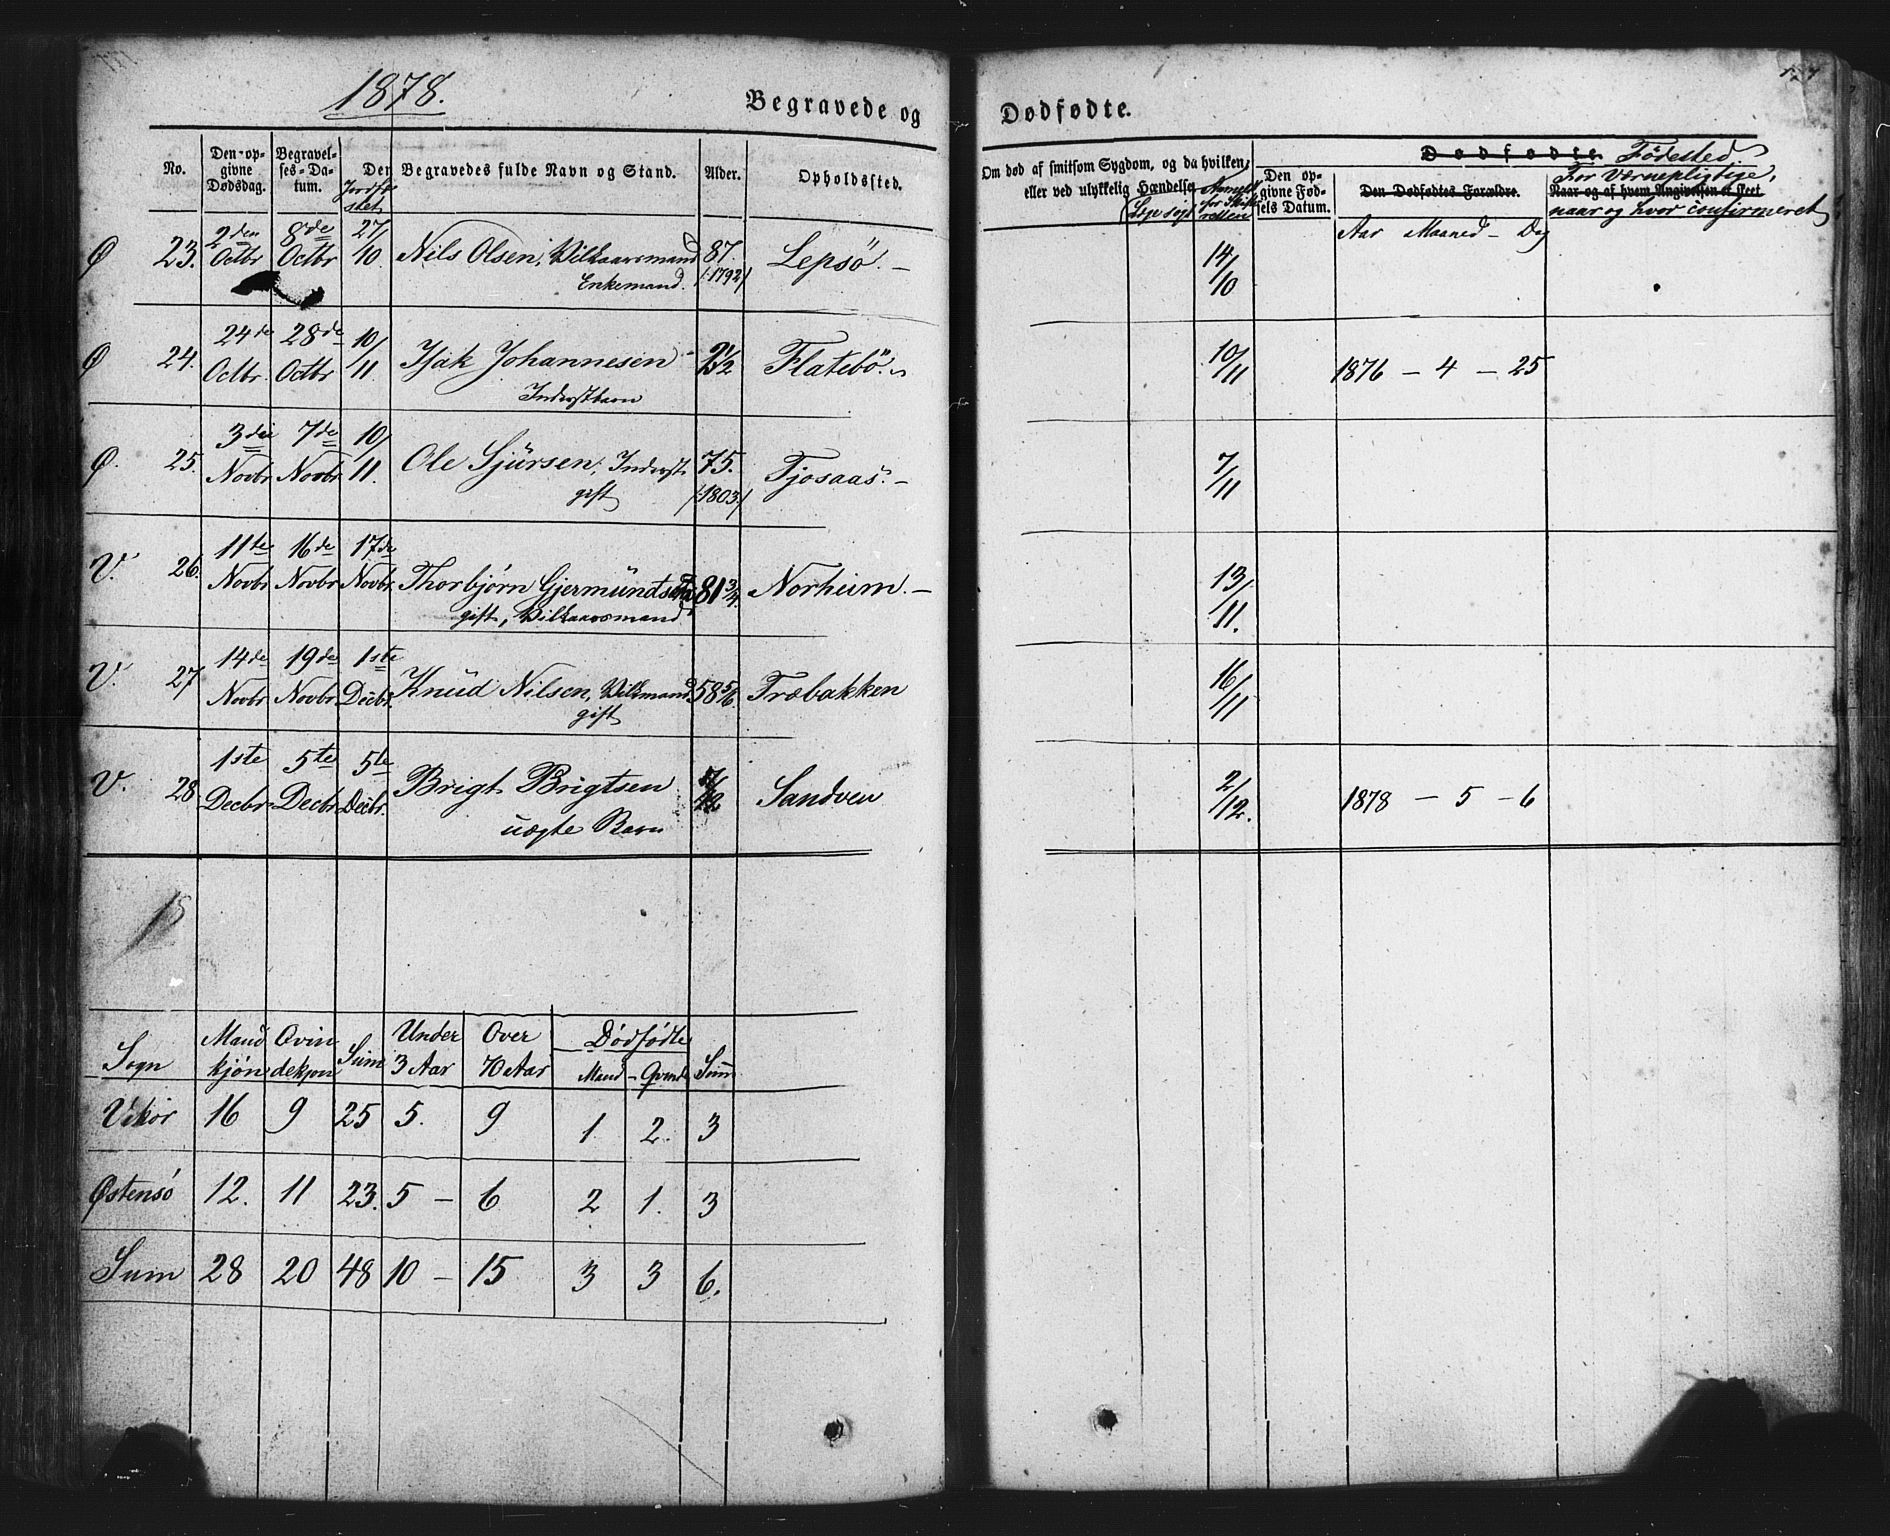 1878.
Begravede og
Dødfødte.
No.
Den opgivne Dødsdag.
Begravelses-Datum.
Jordfæstet
Den Begravedes fulde Navn og Stand.
Alder.
Opholdssted.
Om død af smitsom Sygdom, og da hvilken;
eller ved ulykkelig Hændelse.
Lægesøgt
Anmeldt for Skifteretten
Den opgivne Fødsels Datum.
Dødfødte. Fødested
Den Dødfødtes Forældre.
For Værnepligtige,
Naar og af hvem Angivelsen er skeet
naar og hvor confirmeret
Aar Maaned - Dag
Ø 23. 2den Octbr 8de Octbr 27/10. Nils Olsen, Vilkaarsmand 87. Lepsö. - 14/10
Enkemand. /:1792/
Ø 24. 24de Octbr. 28de Octbr 10/11. Isak Johannesen - 2 1/2 Flatebö. 10/11 1876 - 4 - 25
Inderstbarn
Ø. 25. 3die Novbr 7de Novbr. 10/11. Ole Sjursen, Inderst. 75. Tjosaas. - 7/11
gift /:1803:/
V. 26. 11te Novbr 16de Novbr 17de Novbr. Thorbjørn Gjermundsen 81 3/4. Norheim. - 13/11.
gift, Vilkaarsmand
V. 27 14de Novbr 19de Novbr 1ste Decbr. Knud Nilsen, Vilkmand 58 5/6. Træbakken 16/11
gift
V. 28. 1ste Decbr. 5te Decbr 5te Decbr. Brigt Brigtsen 7/12 Sandven 2/12. 1878 - 5 - 6
uægte Barn
15
Sogn Mandkjøn Qvindekjøn Sum Under 3 Aar Over 70 Aar Dödfödte Mand - Qvinde Sum
Vikör 16 9 25 5. 9 1 2. 3
Østensö 12. 11 23. 5 - 6 2 1. 3
Sum 28 20 48 10 - 15 3 3 6.